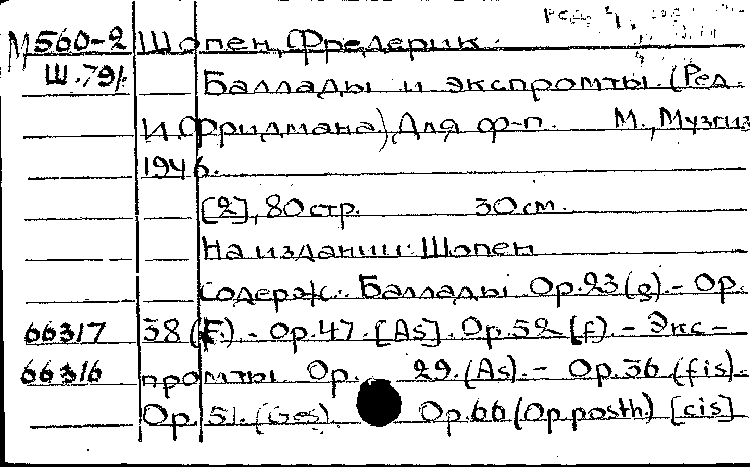 М560-2 Шопен, Фредерик.
Ш.79/. Баллады и экспромты (Ред.
И. Фридмана) Для ф-п. М., Музгиз
1946.
[2], 80 стр. 30 см.
На издании: Шопен
Содерж.: Баллады Op.23(g).- Op.
66317 38 (F).- Op.47.[As]. Op.52 [f).- Экс-
66316 промты Op. 29.(As).- Op.36 (fis).-
Op. 51. (Ges). Op.66 (Op.posth.) [cis]